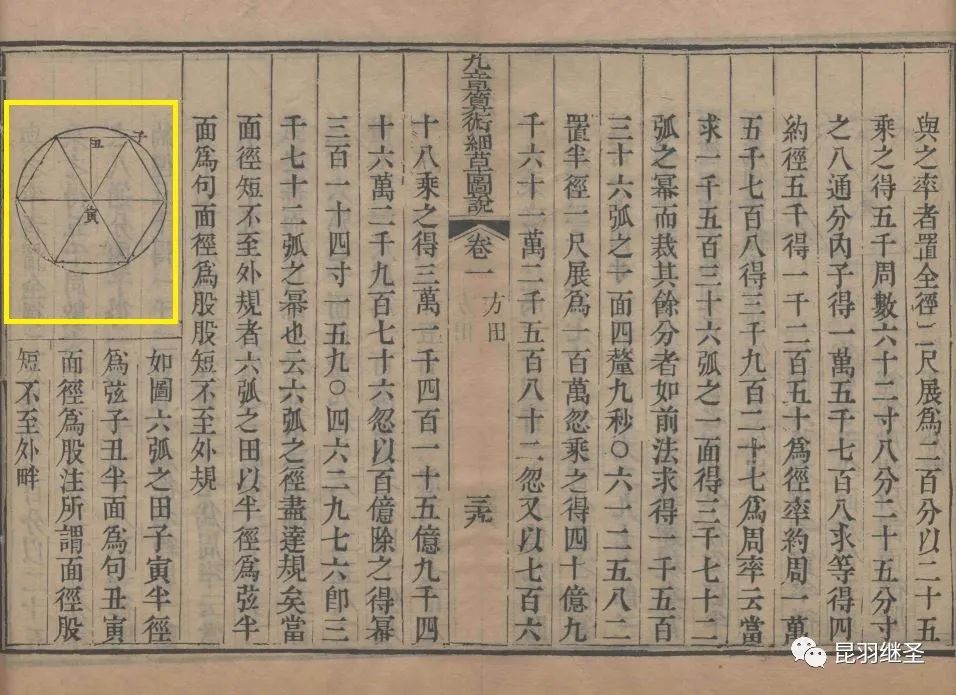 與之率者置全徑二尺展爲二百分以二十五
乘之得五千周數六十二寸八分二十五分寸
之八通分內子得一萬五千七百八求等得四
約徑五千得一千二百五十爲徑率約周一萬
五千七百八得三千九百二十七爲周率云當
求一千五百三十六弧之一面得三千七十二
弧之冪而裁其餘分者如前法求得一千五百
三十六弧之一面四釐九秒〇六一二五八二
置半徑一尺展爲一百萬忽乘之得四十億九
千六十一萬二千五百八十二忽又以七百六
九章算術細草圖說 卷一 方田 三九
十八乘之得三萬一千四百一十五億九千四
十六萬二千九百七十六忽以百億除之得冪
三百一十四寸一五九〇四六二九七六卽三
千七十二弧之冪也云六弧之徑盡達規矣當
面徑短不至外規者六弧之田以半徑爲弦半
面爲句面徑爲股股短不至外規
子
丑
寅
如圖六弧之田子寅半徑
爲弦子丑半面爲句丑寅
面徑爲股注所謂面徑股
短不至外畔
昆羽继圣